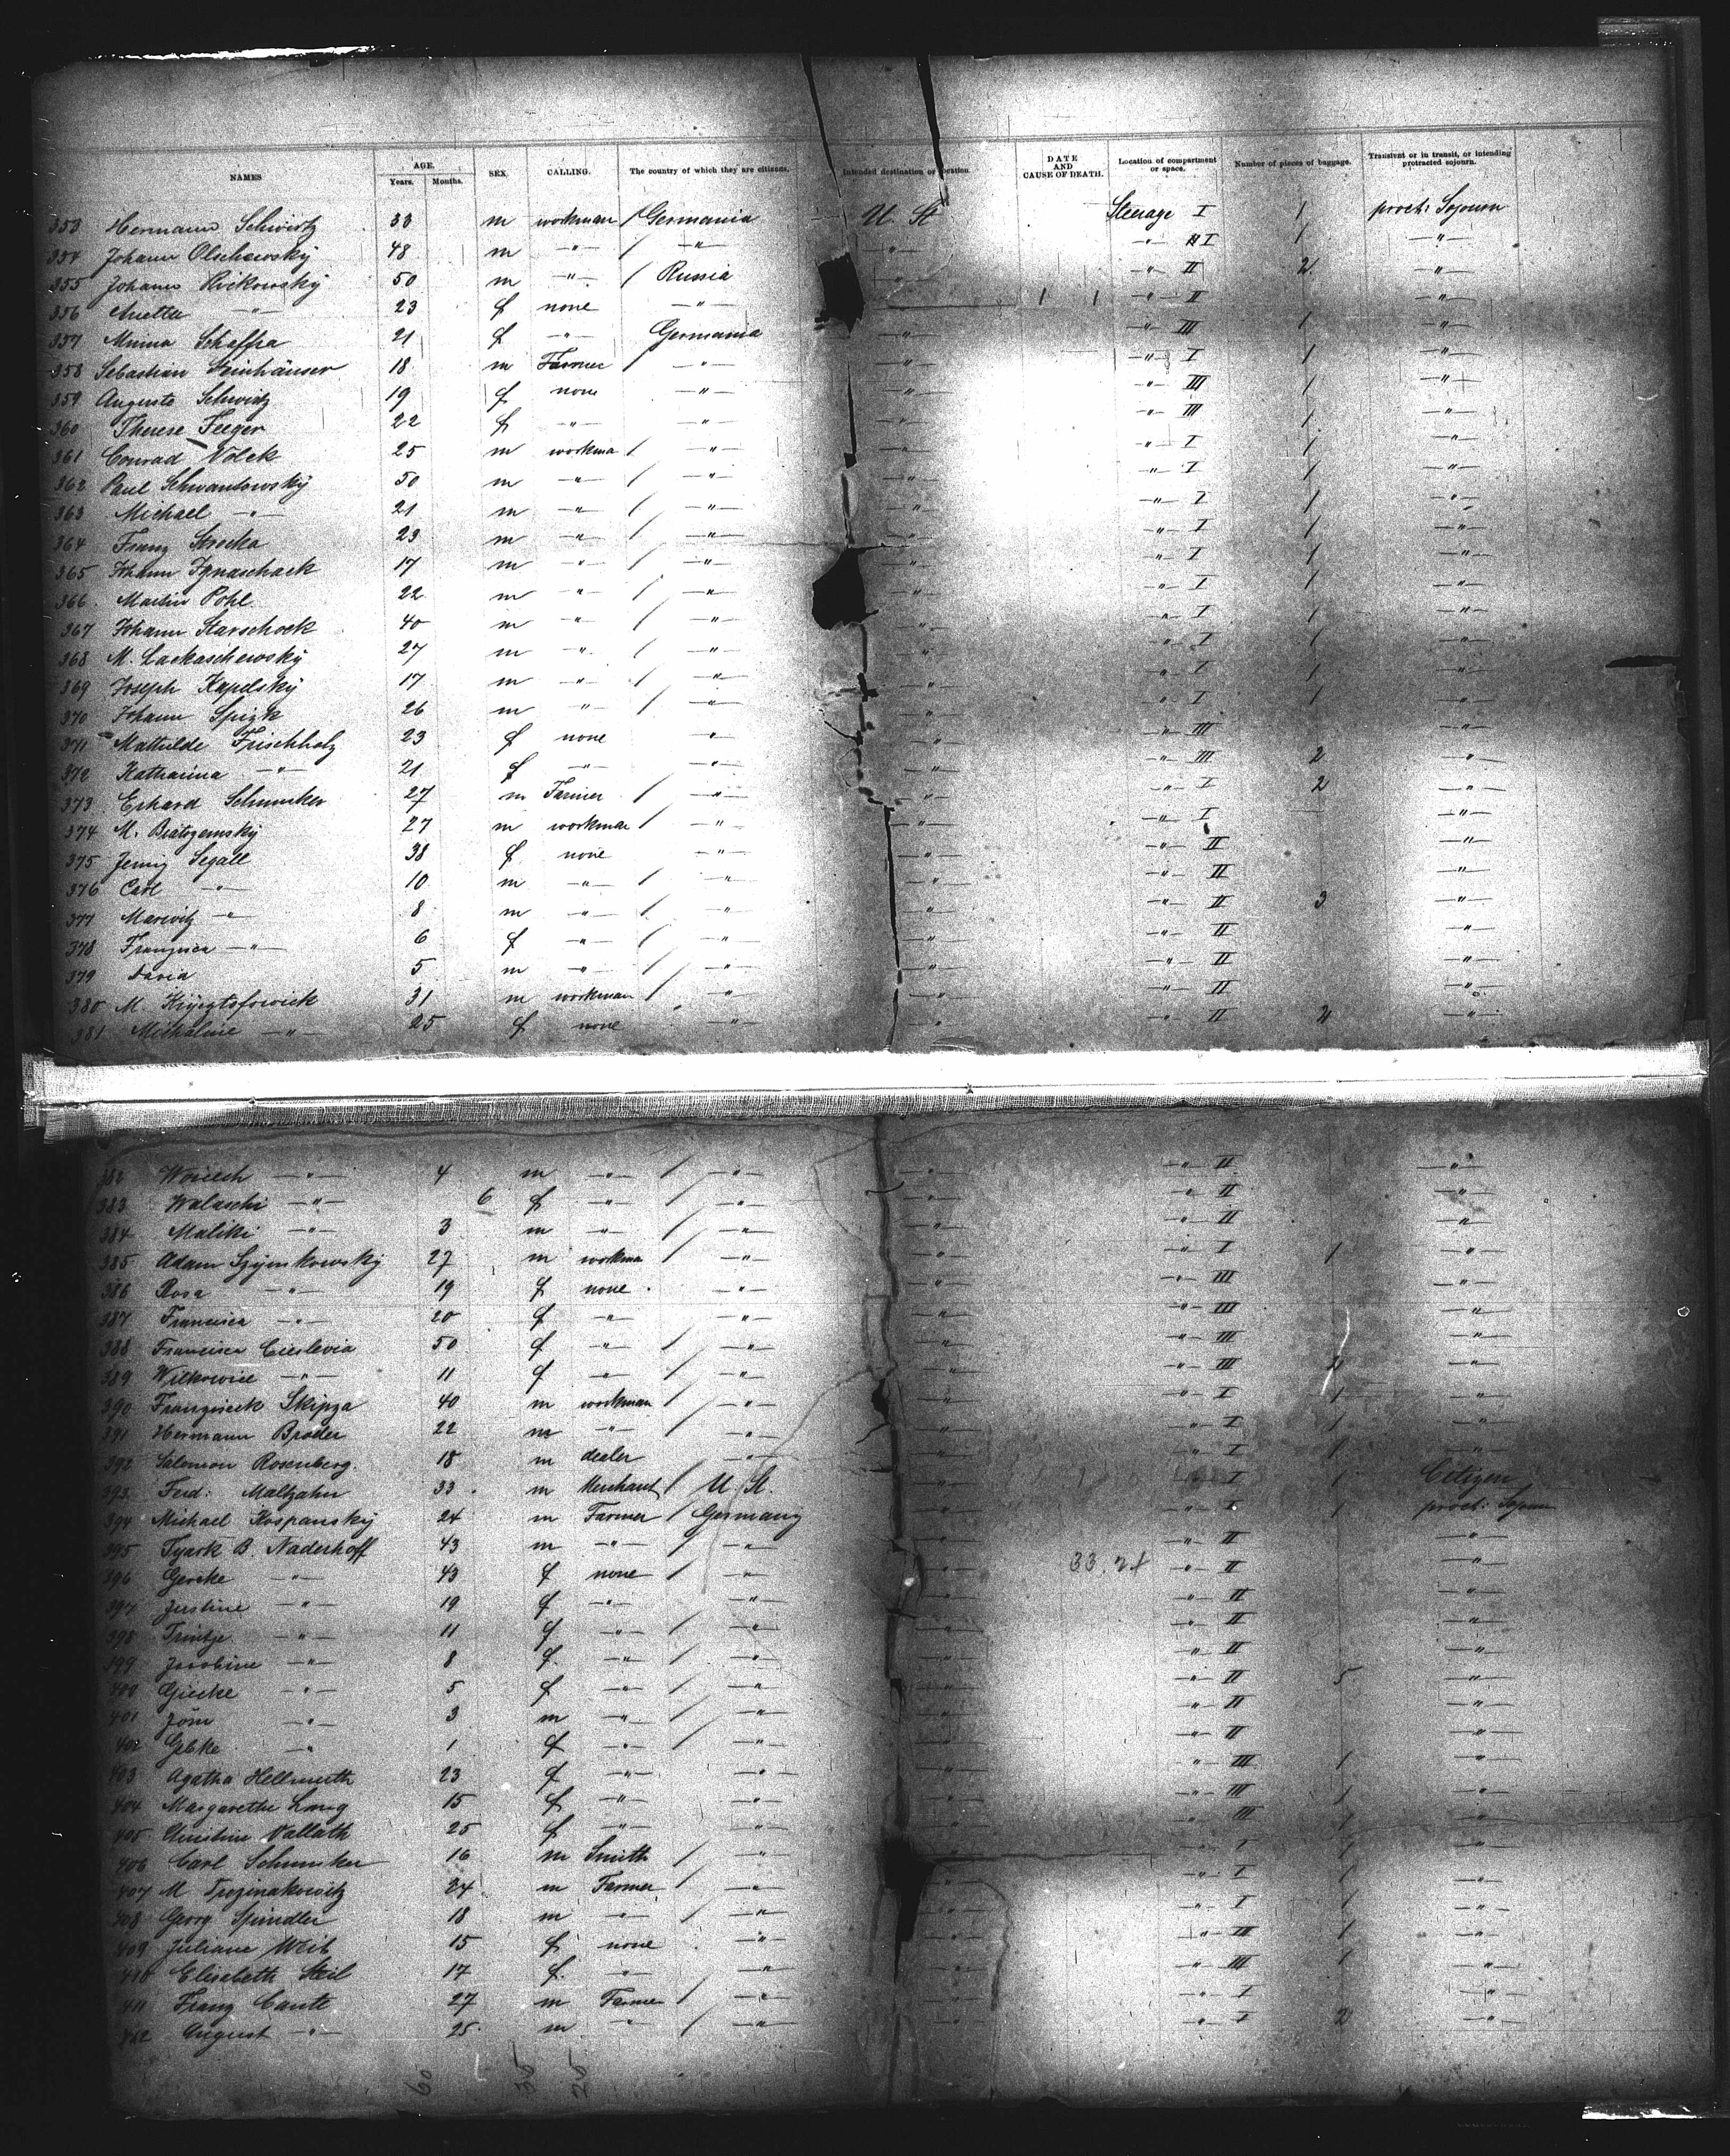 NAMES AGE. Years. Months. SEX. CALLING. The country of which they are citizens. Intended destination or location. DATE AND CAUSE OF DEATH. Location of compartment or space. Number of pieces of baggage. Transient or in transit, or intending protracted sojourn.
353 Hermann Schwirtz 33 m workman / Germania U. St Steerage I 1 proct: Sojourn
354 Johann Olschewsky 48 m -"- / -"- -"- -"- I 1 -"-
355 Johann 50 m -"- / Russia -"- -"- II 2 -"-
356 -"- 23 f none -"- -"- II -"-
357 21 f -"- Germania -"- -"- III 1 -"-
358 Sebastian Steinhäuser 18 m Farmer / -"- -"- -"- I 1 -"-
359 Auguste Schwirtz 19 f none -"- -"- -"- III 1 -"-
360 Therese Feeger 22 f -"- -"- -"- -"- III 1 -"-
361 Conrad Völck 25 m workma / -"- -"- -"- I 1 -"-
362 Paul Schwantowsky 50 m -"- / -"- -"- -"- I 1 -"-
363 Michael -"- 21 m -"- / -"- -"- -"- I 1 -"-
364 Franz 23 m -"- / -"- -"- -"- I 1 -"-
365 Johann Ignaschack 17 m -"- / -"- -"- -"- I 1 -"-
366 Martin Pohl 22 m -"- / -"- -"- -"- I 1 -"-
367 Johann Starschock 40 m -"- / -"- -"- -"- I 1 -"-
368 M. Lackaschewsky 27 m -"- / -"- -"- -"- I 1 -"-
369 Joseph Kapelsky 17 m -"- / -"- -"- -"- I 1 -"-
370 Johann 26 m -"- / -"- -"- -"- I 1 -"-
371 Mathilde Frischholz 23 f none -"- -"- -"- III -"-
372 Katharina -"- 21 f -"- -"- -"- -"- III 2 -"-
373 Erhard Schmuker 27 m Farmer / -"- -"- -"- I 2 -"-
374 M. 27 m workman / -"- -"- -"- I -"-
375 Jenny Segall 38 f none -"- -"- -"- II -"-
376 Carl -"- 10 m -"- / -"- -"- -"- II -"-
377 -"- 8 m -"- / -"- -"- -"- II 3 -"-
378 Franzisca -"- 6 f -"- / -"- -"- -"- II -"-
379 5 m -"- / -"- -"- -"- II -"-
380 M. 31 m workman / -"- -"- -"- II -"-
381 Michaline -"- 25 f none -"- -"- -"- II 2 -"-
382 -"- 4 m -"- / -"- -"- -"- II -"-
383 Walaschi -"- 6 f -"- / -"- -"- -"- II -"-
384 Maliki -"- 3 m -"- / -"- -"- -"- II -"-
385 Adam Szymkowsky 27 m workma / -"- -"- -"- I 1 -"-
386 Rosa -"- 19 f none -"- -"- -"- III -"-
387 Francisca -"- 20 f -"- -"- -"- -"- III -"-
388 Francisca Cieslevia 50 f -"- / -"- -"- -"- III -"-
389 -"- 11 f -"- / -"- -"- -"- III 2 -"-
390 Skipza 40 m workman / -"- -"- -"- I 1 -"-
391 Hermann Broder 22 m -"- / -"- -"- -"- I 1 -"-
392 Salomon Rosenberg 18 m dealer -"- -"- -"- I 1 -"-
393 Ferd: Maltzahn 33 m Merchant / U. St. -"- -"- I 1 Citizen
394 Michael Kospansky 24 m Farmer / Germany -"- -"- I 1 proct: Sojourn
395 Tyark B. Naderhoff 43 m -"- / -"- -"- -"- II -"-
396 Gercke -"- 43 f none / -"- -"- 33.24 -"- II -"-
397 Justine -"- 19 f -"- -"- -"- -"- II -"-
398 Trintje -"- 11 f -"- / -"- -"- -"- II -"-
399 Jacobine -"- 8 f -"- / -"- -"- -"- II -"-
400 Gieske -"- 5 f -"- / -"- -"- -"- II 5 -"-
401 -"- 3 m -"- / -"- -"- -"- II -"-
402 Gebke -"- 1 f -"- / -"- -"- -"- II -"-
403 Agatha Hellmuth 23 f -"- -"- -"- -"- III 1 -"-
404 Margarethe Lang 15 f -"- -"- -"- -"- III 1 -"-
405 Christine Vallath 25 f -"- -"- -"- -"- III 1 -"-
406 Carl Schmuker 16 m Smith / -"- -"- -"- I 1 -"-
407 M 24 m Farmer / -"- -"- -"- I 1 -"-
408 Georg Spindler 18 m -"- / -"- -"- -"- I 1 -"-
409 Juliane Weib 15 f none -"- -"- -"- III 1 -"-
410 Elisabeth Keil 17 f -"- -"- -"- -"- III 1 -"-
411 Franz Cante 27 m Farmer / -"- -"- -"- I -"-
August -"- 25 m -"- / -"- -"- -"- I 2 -"-
60 35 25